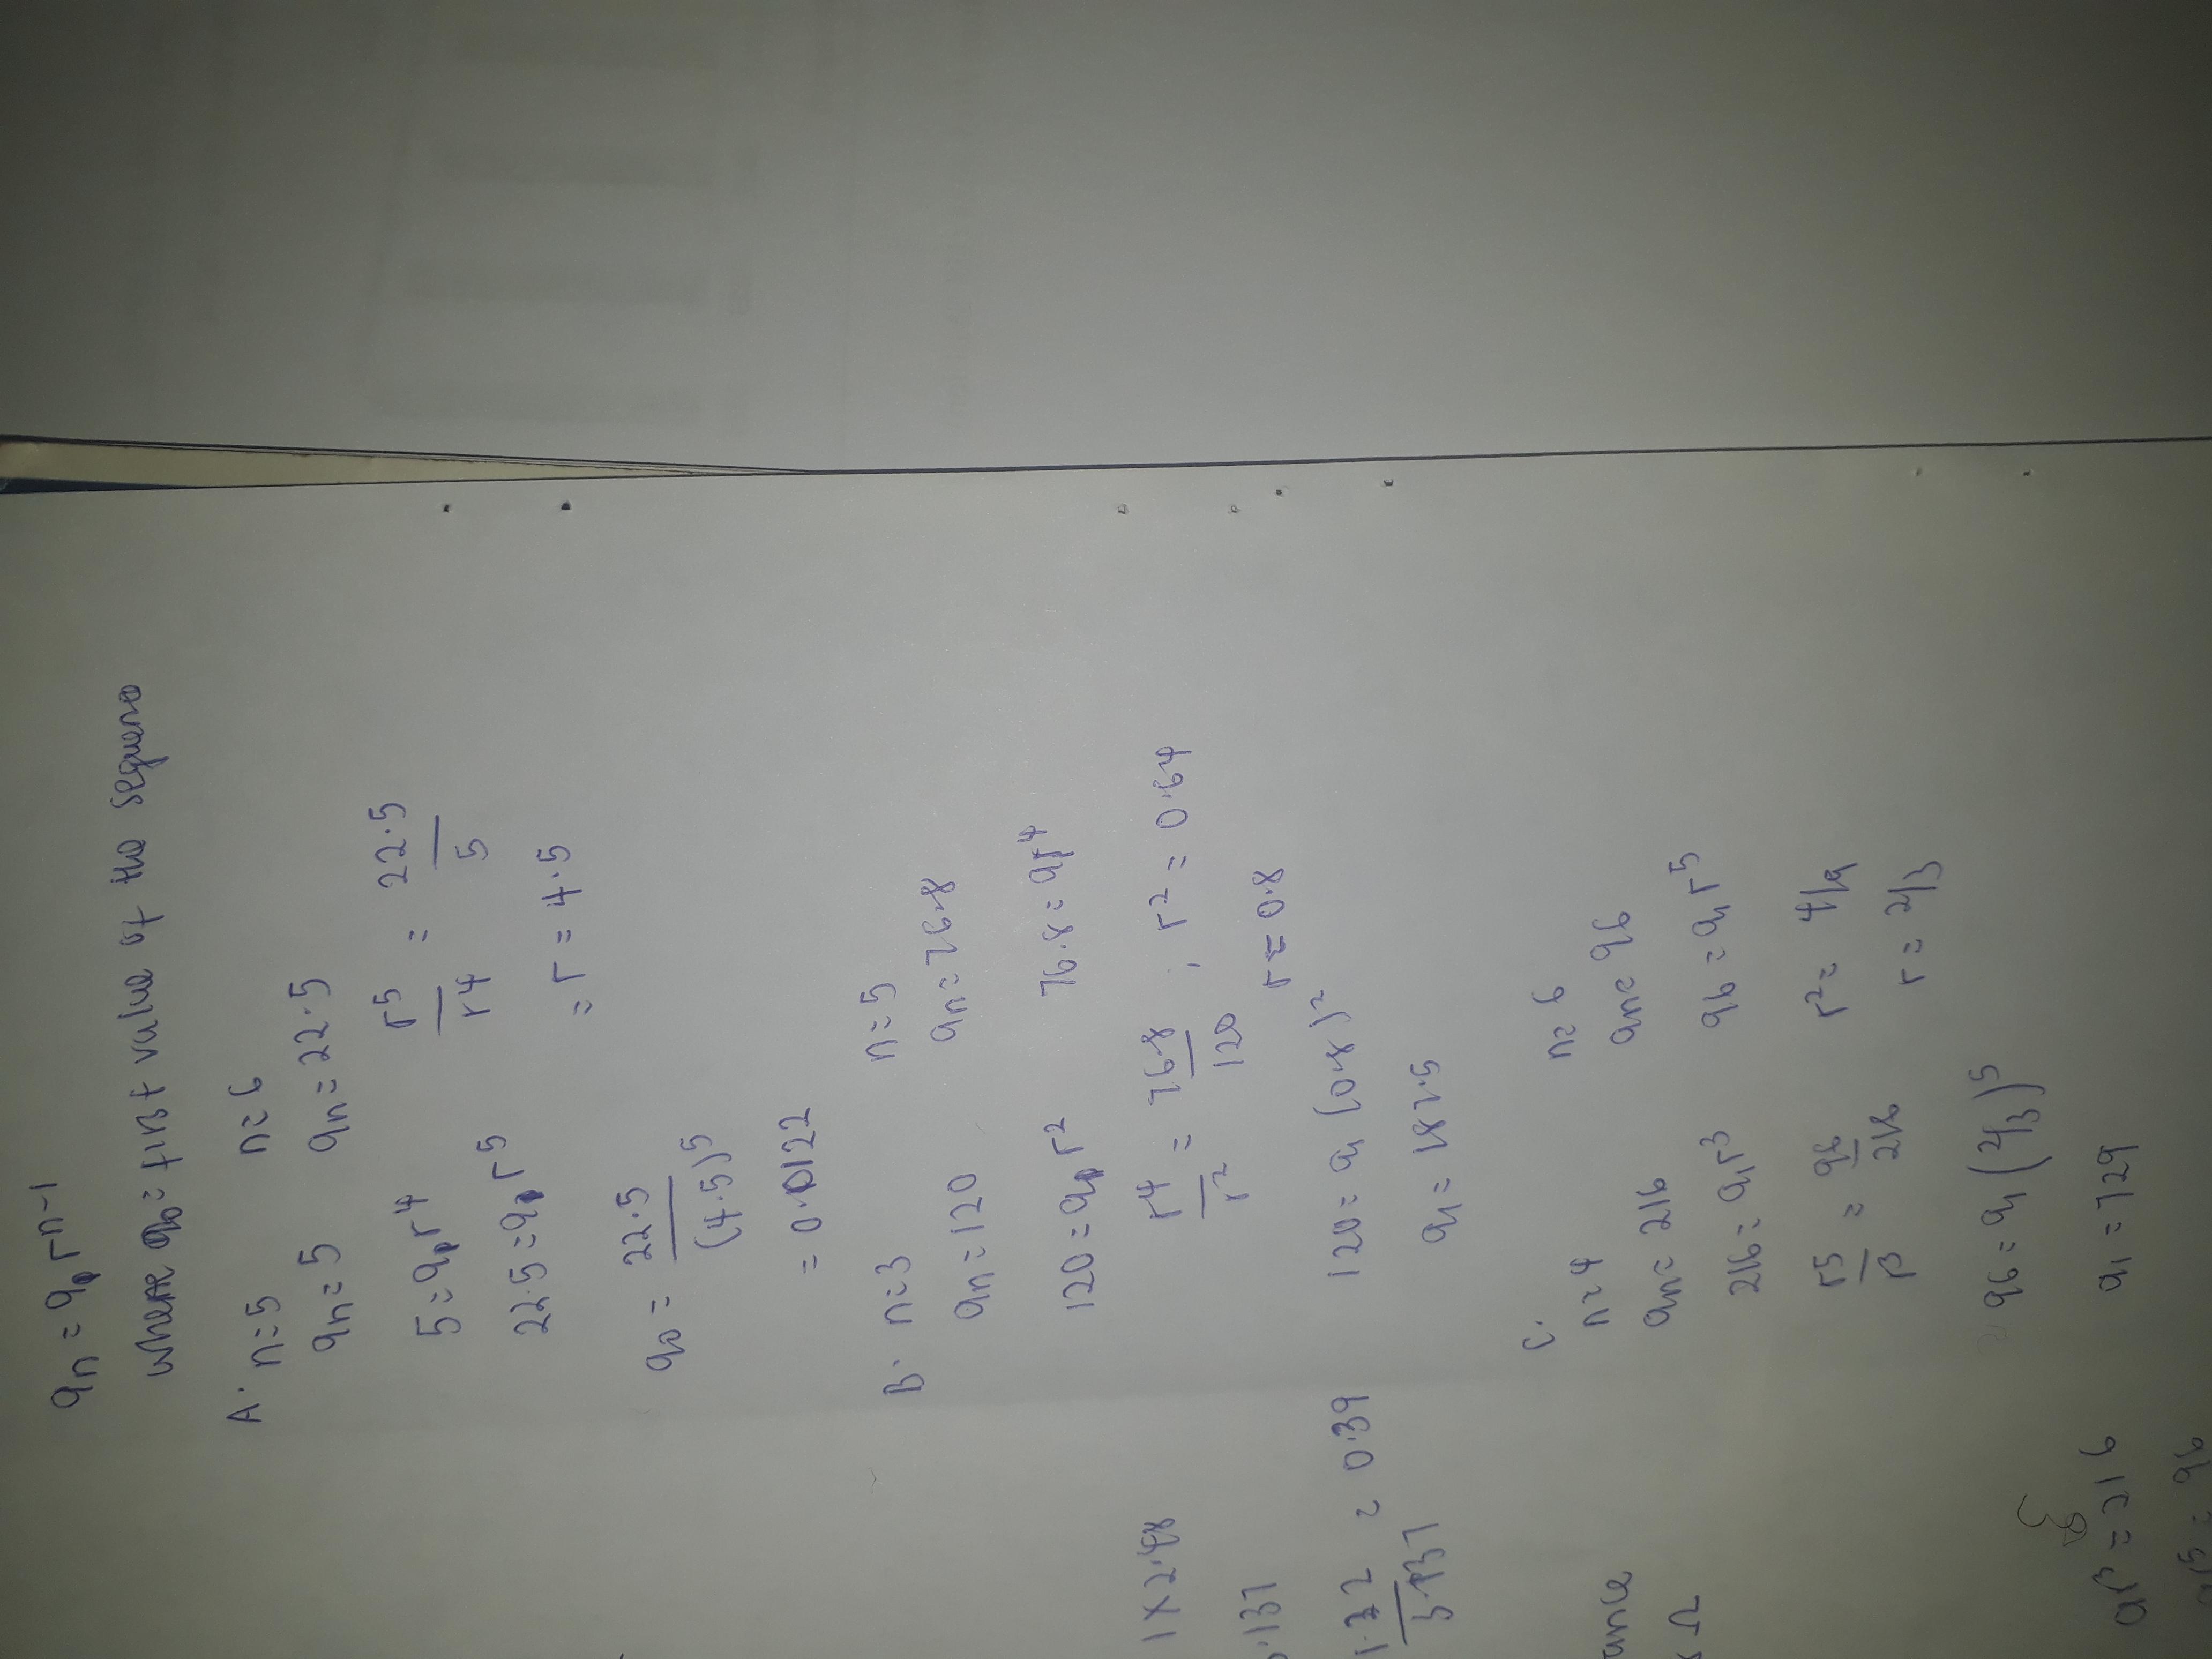 an = a₁ rⁿ⁻¹
where a₀ = first value of the sequence
A. n=5 n=6
an=5 an=22.5
5=a₁r⁴ r⁵/r⁴ = 22.5/5
22.5=a₁r⁵ = r = 4.5
a₀ = 22.5/(4.5)⁵
= 0.0122
B. n=3 n=5
an=120 an=76.8
120=a₁r² 76.8=ar⁴
r⁴/r² = 76.8/120 ; r² = 0.64
r = 0.8
120 = a₁ (0.8)²
a₁ = 187.5
C.
n=4 n=6
an= 216 an= 96
216= a₁r³ 96 = a₁r⁵
r⁵/r³ = 96/216 r² = 4/9
r = 2/3
96 = a₁ (2/3)⁵
a₁ = 729
1 X 2.48
.137
1.22/3.137 = 0.39
ar³ = 216
= 96